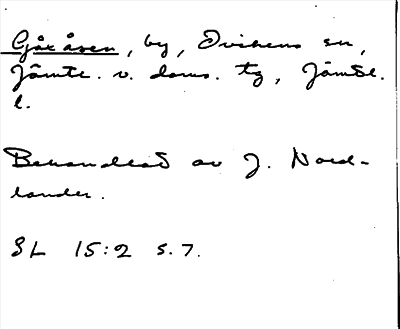 Gåxåsen, by, Ovikens sn,
Jämtl. v. doms. tg, Jämtl.
l.
Behandlad av J. Nord-
lander.
SL 15:2 s. 7.